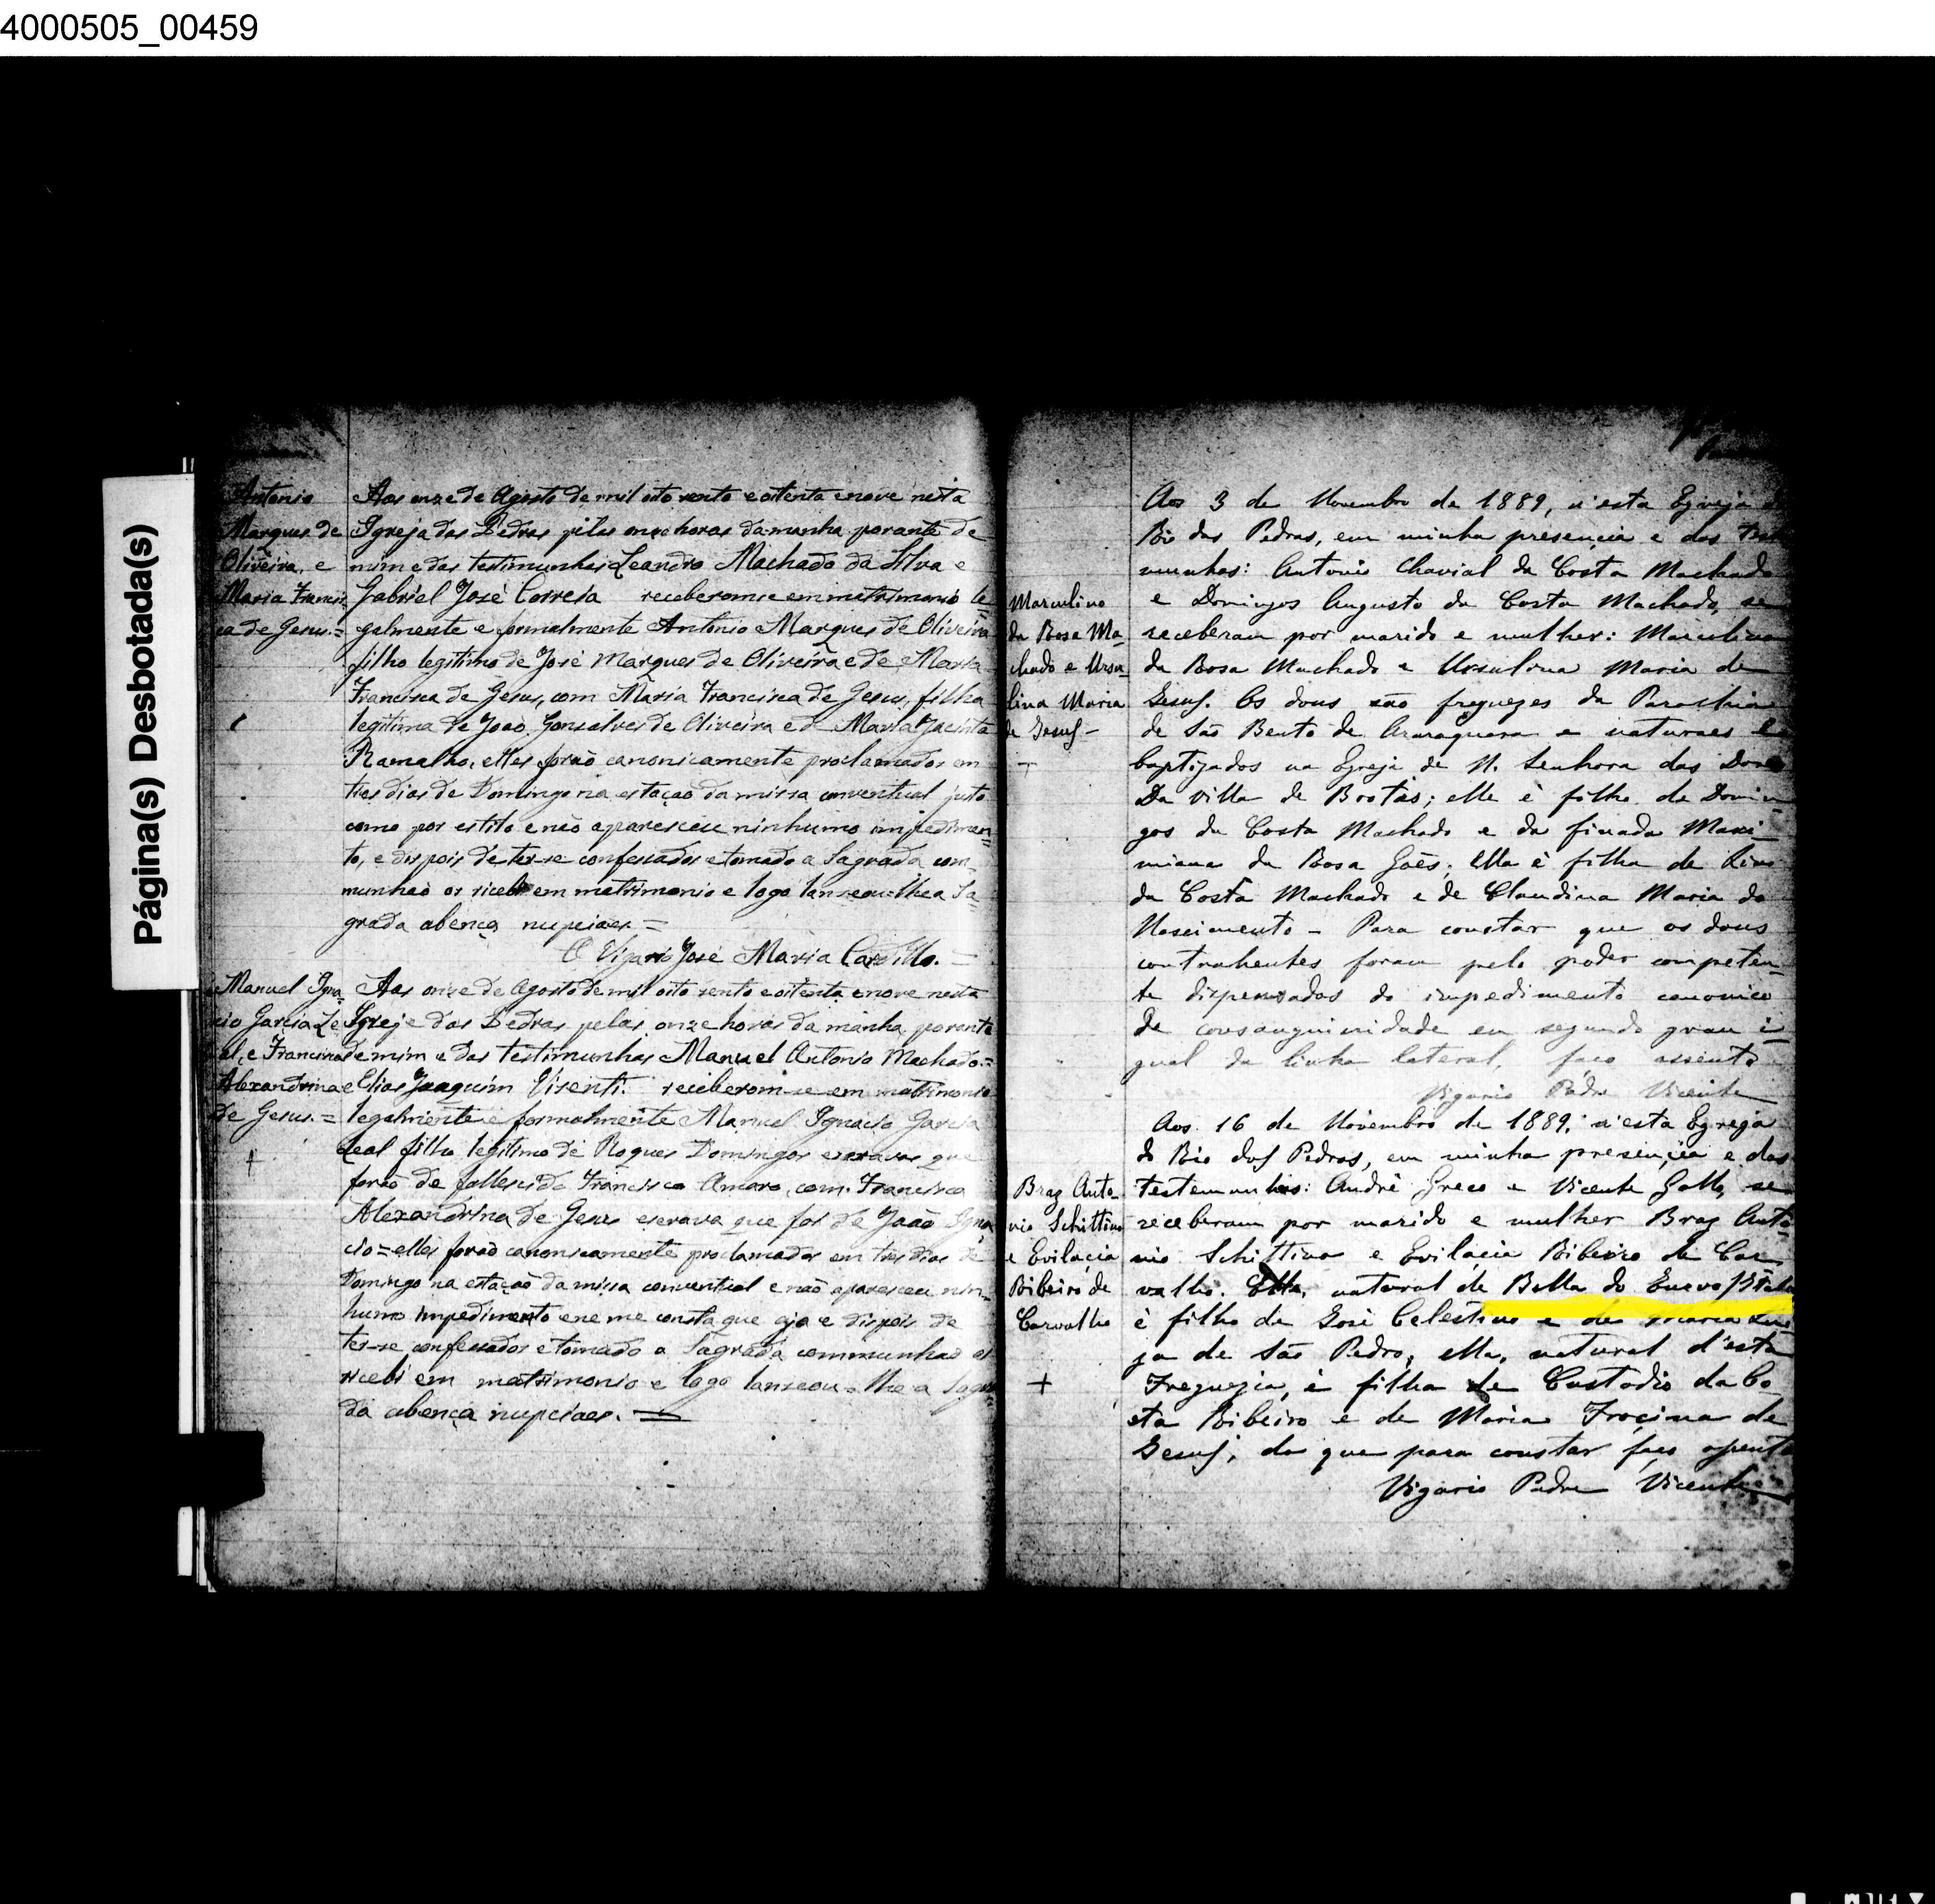 4000505_00459
Página(s) Desbotada(s)
Antonio
Marques de
Oliveira, e
Maria Francis
ca de Gesus.=
Aos onze de Agosto de mil oito sento e oitenta e nove nesta
Igreja das Pedras pelas onze horas da manha, porante de
mim e das testimunhas Leandro Machado da Silva e
Gabriel José Correia receberomse em matrimonio le=
galmente e formalmente Antonio Marques de Oliveira
filho legitimo de José Marques de Oliveira e de Maria
Francisca de Gesus, com Maria Francisca de Gesus, filha
legitima de João Gonsalves de Oliveira e de Maria Jacinta
Ramalho, elles forão canonicamente proclamados em
tres dias de Domingo na estação da missa conventual justo
como por estilo e não aparesceu ninhumo impedimen=
to, e dispois de ter-se confessados e tomado a Sagrada com=
munhão os ricebi em matrimonio e logo lanseou-lhe a Sa=
grada abença nupciaes.=
O Vigario José Maria Cardillo.=
Manuel Igna=
cio Garcia Le
al, e Francisca
Alexandrina
de Gesus.=
Aos onze de Agosto de mil oito sento e oitenta e nove nesta
Igreje das Pedras pelas onze horas da manha, porante
de mim e das testimunhas Manuel Antonio Machado=
e Elias Joaquim Visenti. receberom-se em matrimonio
legalmente e formalmente Manuel Ignacio Garcia
Leal filho legitimo de Roques Domingos escravos que
forão de fallescido Francisco Amaro, com Francisca
Alexandrina de Gesus escrava que foi de João Igna
cio=elles forão canonicamente proclamados em tres dias de
Domingo na estação da missa conventual e não aparesceu nin=
humo impedimento e ne me consta que aja e dispois de
ter-se confessados e tomado a Sagrada communhão os
ricebi em matrimonio e logo lanseou-lhe a Sagra
da abença nupciaes.=
Marculino
da Rosa Ma-
chado e Ursu-
lina Maria
de Jesus-
Aos 3 de Novembro de 1889, n'esta Egreja do
Rio das Pedras, em minha presencia e das Teste
munhas: Antonio Chavial da Costa Machado
e Domingos Augusto da Costa Machado, se
receberam por marido e mulher: Marculino
da Rosa Machado e Ursulina Maria de
Jesus. Os dous são freguezes da Parochia
de São Bento de Araraquara e naturaes e
baptizados na Egreja de N. Senhora das Dores
Da Villa de Brotas; elle è filho de Domin
gos da Costa Machado e da finada Maxi-
miana da Rosa Goès; ella è filha de Lino
da Costa Machado e de Claudina Maria do
Nascimento - Para constar que os dous
contrahentes foram pelo poder competen-
te dispensados do impedimento canonico
de consanguinidade em segundo grau i-
gual da linha lateral, faco assento
Vigario Padre Vicente
Braz Anto-
nio Schittino
e Evilacia
Ribeiro de
Carvalho
Aos 16 de Novembro de 1889, n'esta Egreja
do Rio das Pedras, em minha presencia e das
testemunhas: Andrè Greco e Vicente Gallo, se
receberam por marido e mulher Braz Anto
nio Schittino e Evilacia Ribeiro de Car
valho. Elle, natural de Bella do
è filho de José Celestino e de Maria Lui
za de São Pedro; ella, natural d'esta
Freguezia, è filha de Custodio da Co
sta Ribeiro e de Maria Frocina de
Jesus; do que para constar faco assento
Vigario Padre Vicente